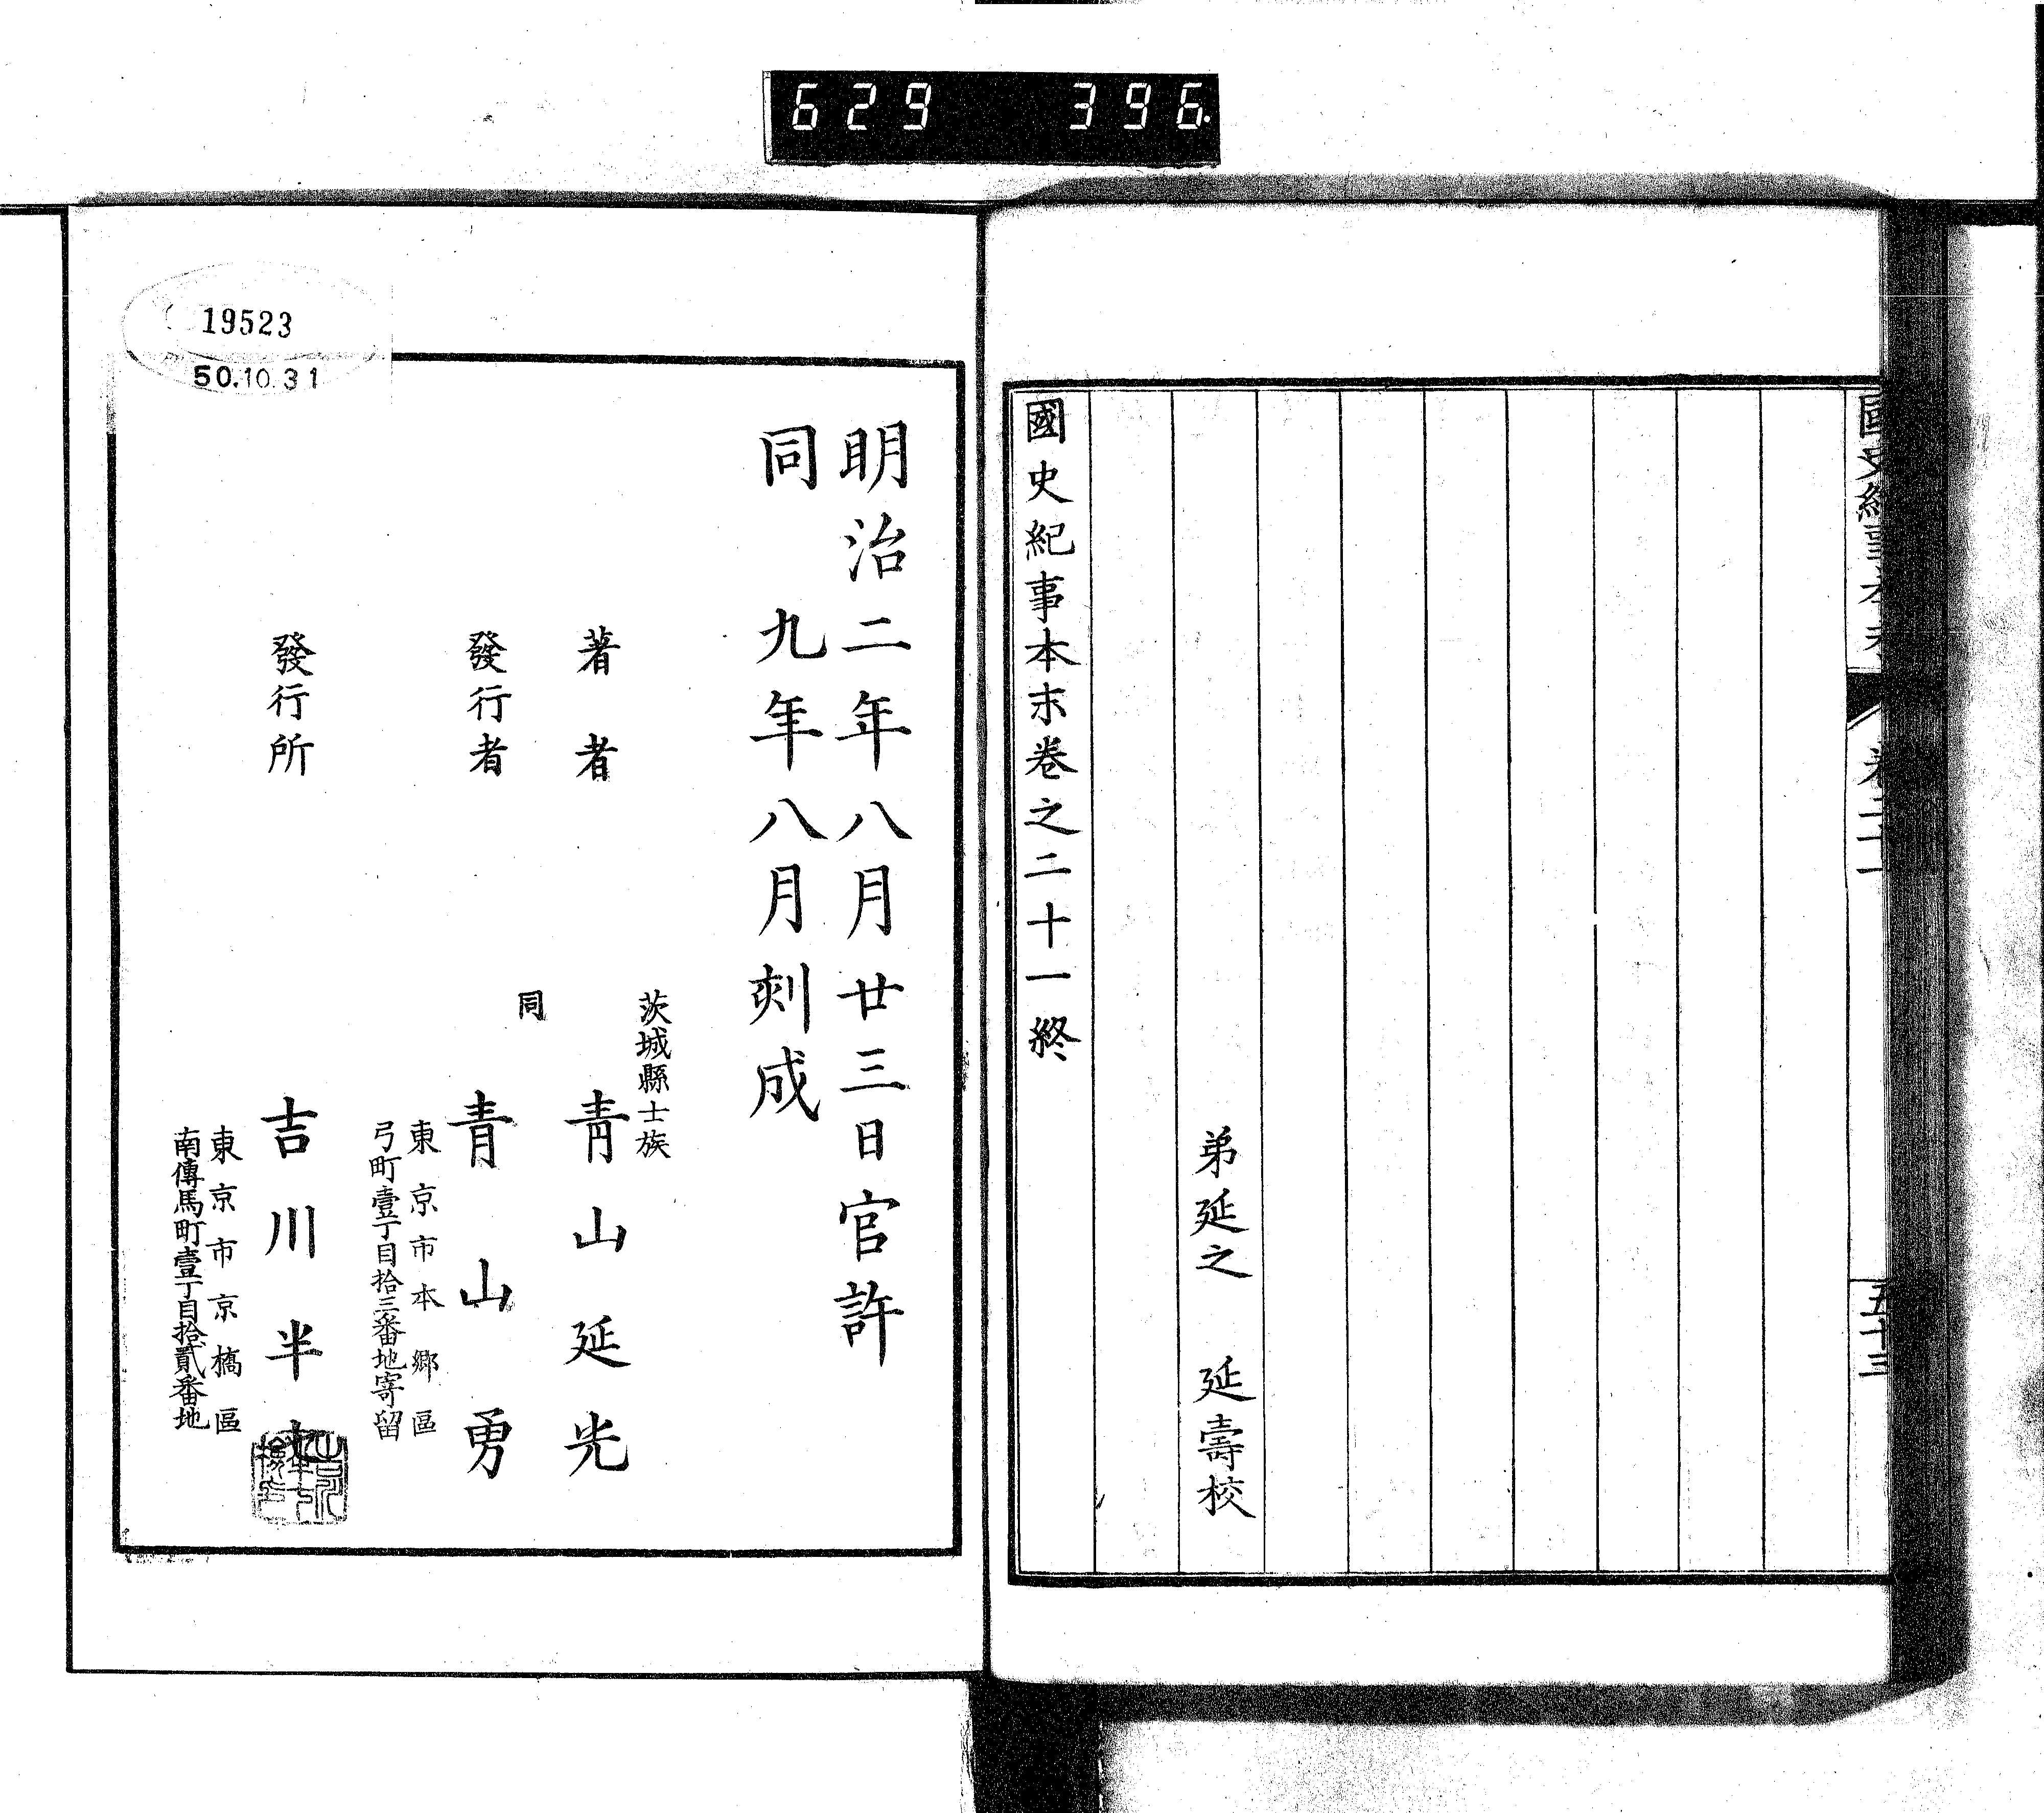 629 396
國史紀事本末 卷二十一 五十三
弟延之 延壽校
國史紀事本末卷之二十一終
19523
50.10.31
明治二年八月廿三日官許
同 九年八月刻成
茨城縣士族
著者 靑山延光
同
發行者 青山勇
東京市本鄉區
弓町壹丁目拾三番地寄留
發行所 吉川半七
東京市京橋區
南傳馬町壹丁目拾貳番地